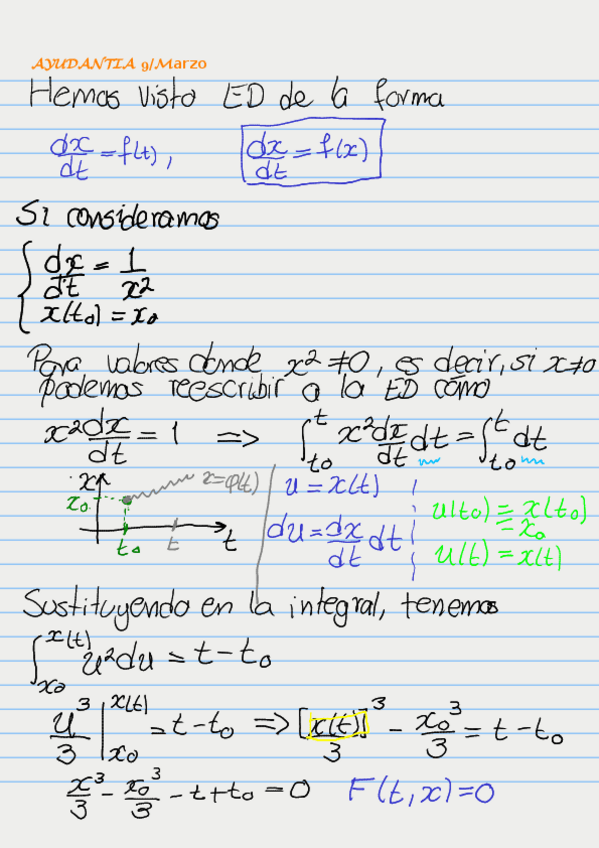 AYUDANTIA 9/Marzo
Hemos visto ED de la forma
dx/dt = f(t), dx/dt = f(x)
Si consideramos
{ dx/dt = 1/x²
x(t₀) = x₀
Para valores donde x² ≠ 0, es decir, si x≠0
podemos reescribir a la ED cómo
x² dx/dt = 1 => ∫_{t₀}^{t} x² dx/dt dt = ∫_{t₀}^{t} dt
x x₀ x=φ(t) t₀ t t
u = x(t)
du = dx/dt dt
u(t₀) = x(t₀)
= x₀
u(t) = x(t)
Sustituyendo en la integral, tenemos
∫_{x₀}^{x(t)} u² du = t - t₀
u³/3 |_{x₀}^{x(t)} = t - t₀ => [x(t)]³/3 - x₀³/3 = t - t₀
x³/3 - x₀³/3 - t + t₀ = 0 F(t,x)=0